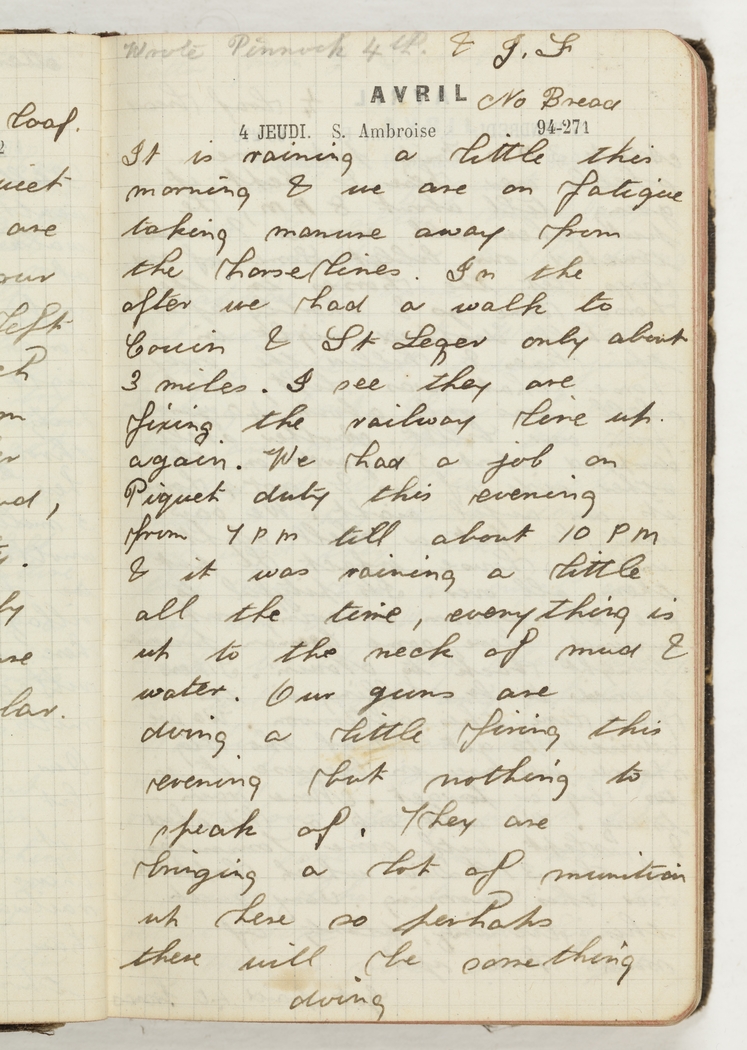 Wrote Pinnock 4th. & J. F
AVRIL No Bread
4 JEUDI. S. Ambroise 94-271
It is raining a little this
morning & we are on fatigue
taking manure away from
the horse lines. In the
after we had a walk to
Couin & St Leger only about
3 miles. I see they are
fixing the railway line up.
again. We had a job on
Piquet duty this evening
from 7 PM till about 10 PM
& it was raining a little
all the time, everything is
up to the neck of mud &
water. Our guns are
doing a little firing this
evening but nothing to
speak of. They are
bringing a lot of munition
up here so perhaps
there will be something
doing
loaf.
2
uiet
are
our
left
ch
m
er
nd,
.
by
se
lar.